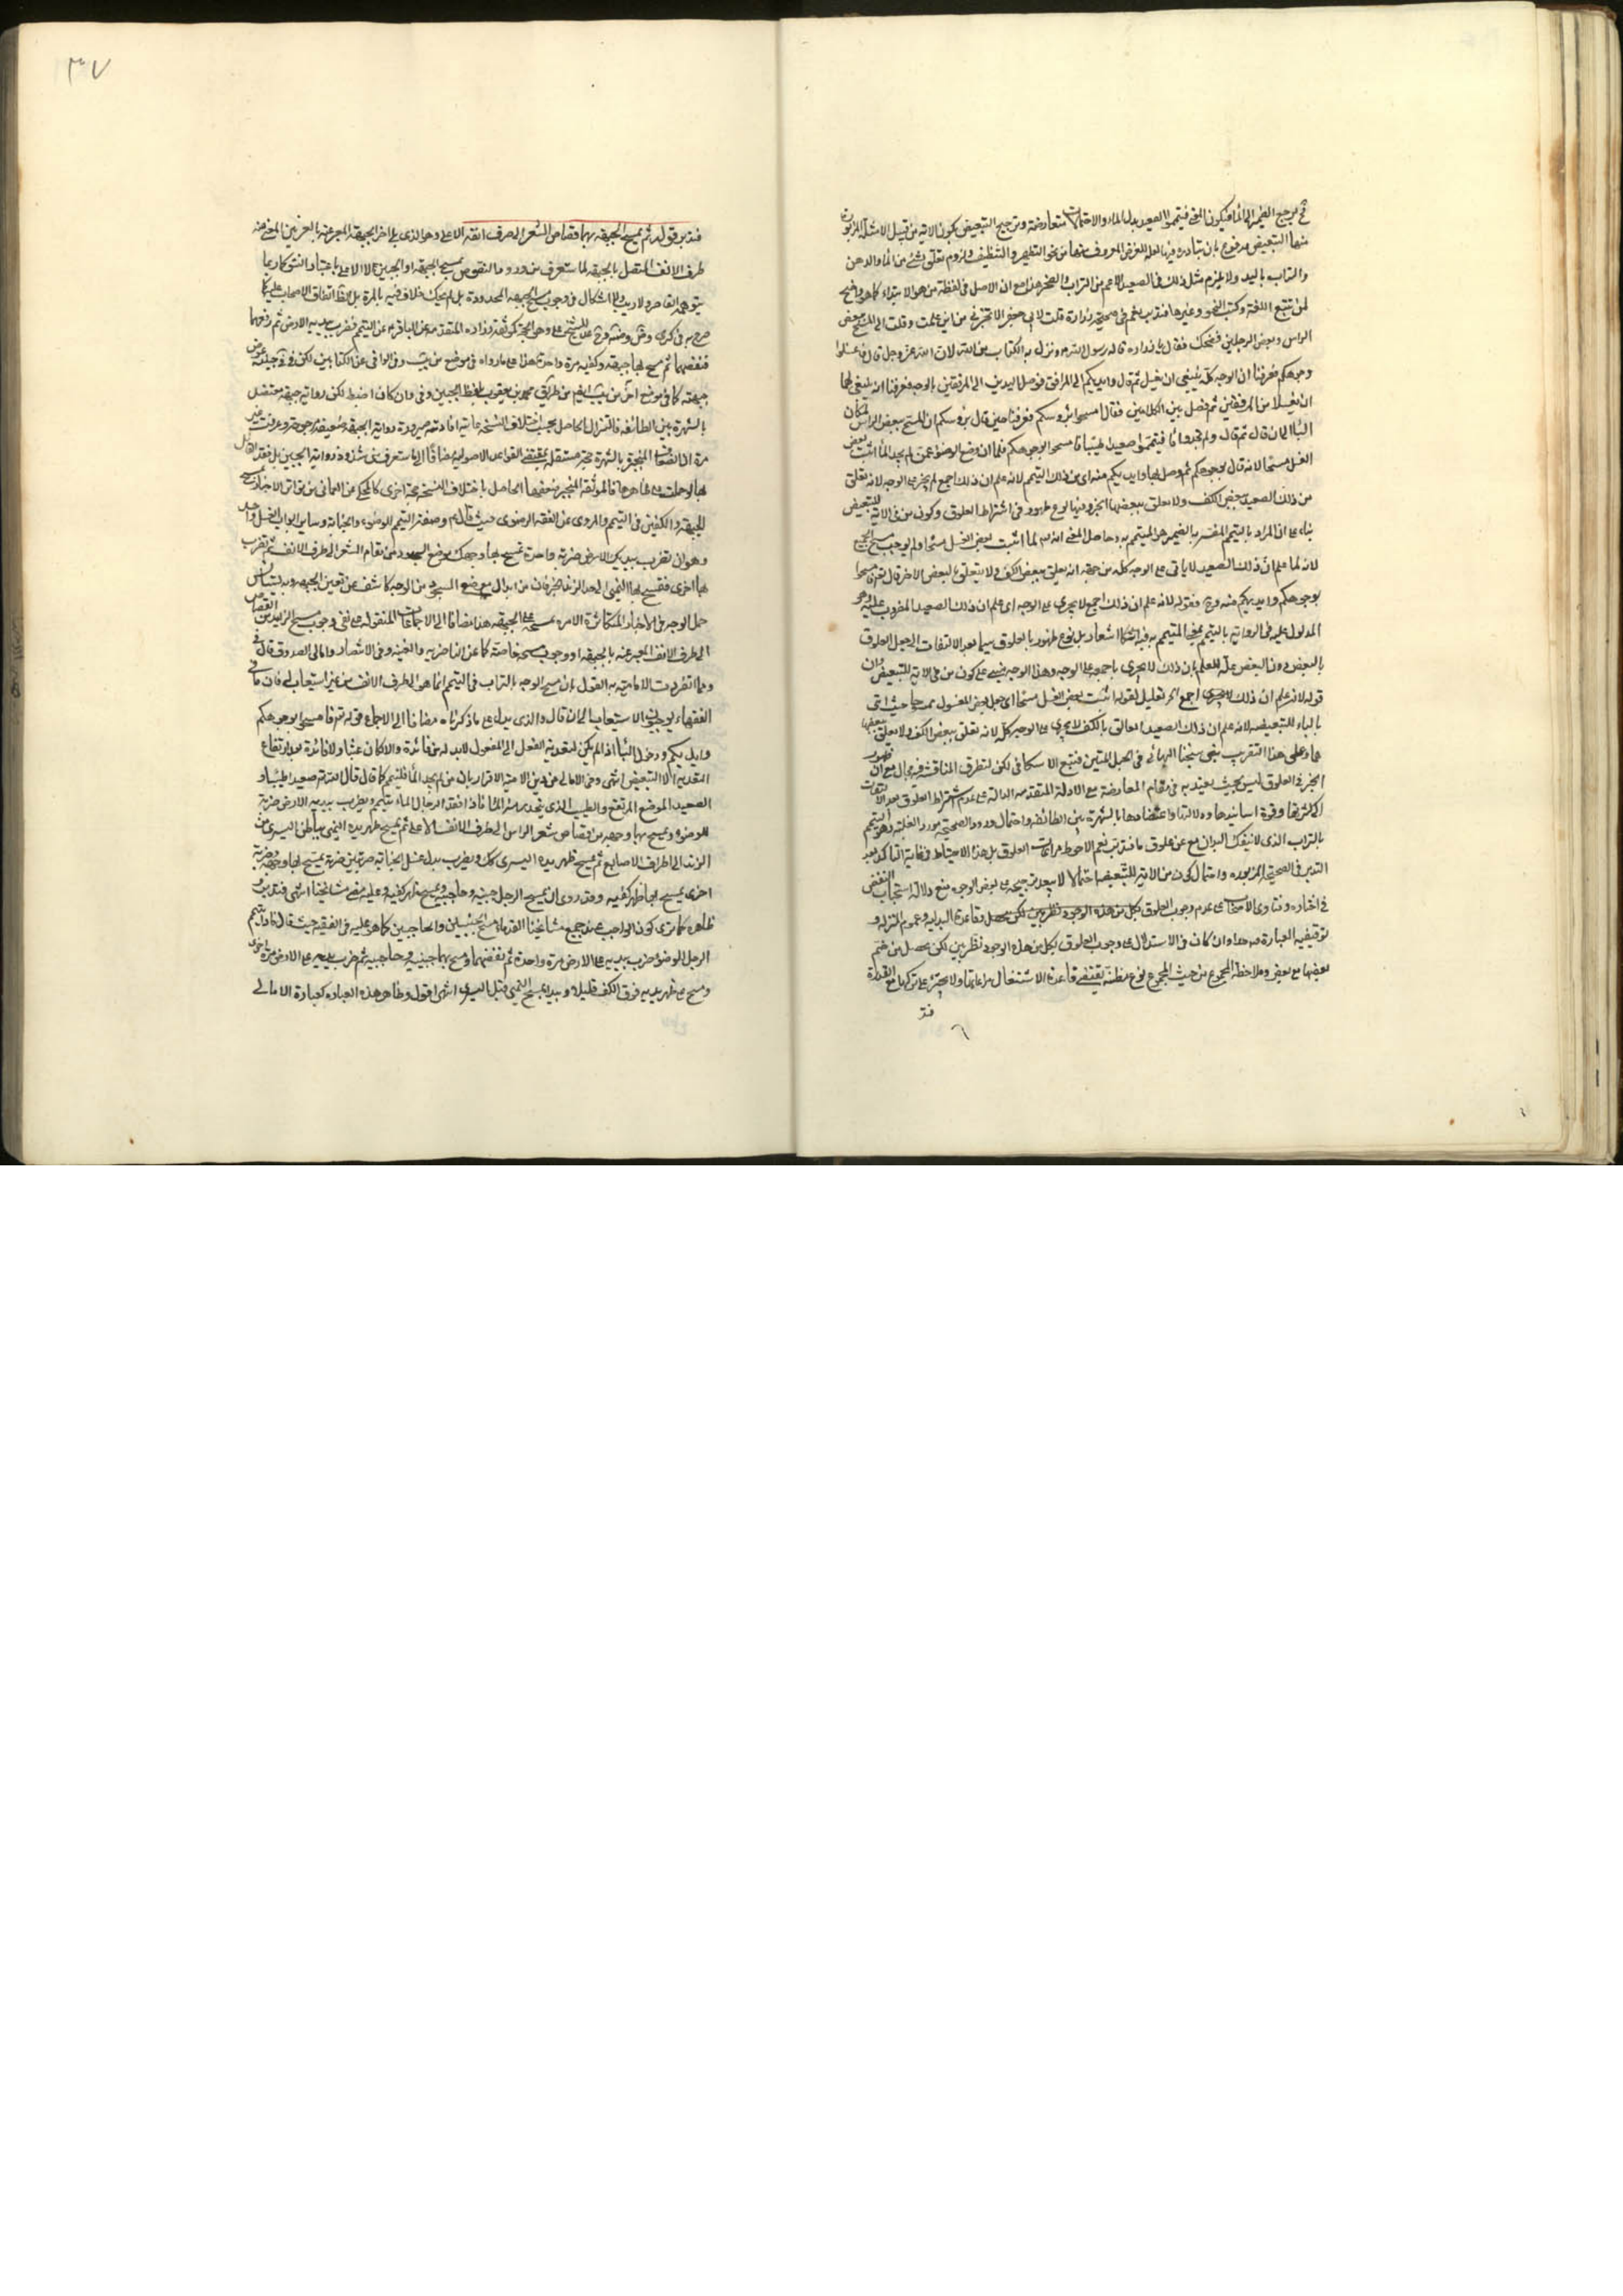 ثم يرجع الضمير الى الماء فيكون المعنى فتيمموا الصعيد بدل الماء والاحتمالات متعارضة وترجيح التبعيض بكون الآية من قبيل الامثلة المزبورة
منها التبعيض مدفوع بان تبادره فيها لعله للغرض المعروف منها من نحو التطهير والتنظيف ولزوم تعلق شئ من الماء والدهن
والتراب باليد ولا يلزم مثل ذلك في الصعيد الاعم من التراب والصخر هذا مع ان الاصل في لفظة من هو الابتداء كما هو واضح
لمن تتبع اللغة وكتب النحو وغيرها فتدبر نعم في صحيحة زرارة قلت لابى جعفر الا تخبرني من اين علمت وقلت ان المسح ببعض
الراس وبعض الرجلين فضحك فقال يا زرارة قاله رسول الله ونزل به الكتاب من الله لان الله عز وجل قال فاغسلوا
وجوهكم فعرفنا ان الوجه كله ينبغي ان يغسل ثم قال وايديكم الى المرافق فوصل اليدين الى المرفقين بالوجه فعرفنا انه ينبغى لهما
ان يغسلا من المرفقين ثم فصل بين الكلامين فقال امسحوا برؤسكم فعرفنا حين قال برؤسكم ان المسح ببعض الراس لمكان
الباء الى ان قال ثم قال ولم تجدوا ماء فتيمموا صعيدا طيبا فامسحوا بوجوهكم فلما ان وضع الوضوء عمن لم يجد الماء اثبت بعض
الغسل مسحا لانه قال بوجوهكم ثم وصل بها وايديكم منه اى من ذلك التيمم لانه علم ان ذلك اجمع لم يجر على الوجه لانه يعلق
من ذلك الصعيد ببعض الكف ولا يعلق ببعضها الخبر وفيها نوع ظهور في اشتراط العلوق وكون من في الآية للتبعيض
بناء على ان المراد بالتيمم المفسر به الضمير هو المتيمم به وحاصل المعنى انه لما اثبت بعض الغسل مسحا ولم يوجب مسح الجميع
لانه لما علم ان ذلك الصعيد لا ياتى على الوجه كله من جهة انه يعلق ببعض الكف ولا يتعلق بالبعض الاخر قال تعالى فامسحوا
بوجوهكم وايديكم منه وفى قوله لانه علم ان ذلك اجمع لا يجرى على الوجه اى علم ان ذلك الصعيد المضروب عليه وهو
المدلول عليه في الرواية بالتيمم بمعنى المتيمم به فيه اشعار بل نوع ظهور بالعلوق سيما بعد الالتفات الى جعل العلوق
بالبعض دون البعض علة للعلم بان ذلك لا يجرى باجمعه على الوجه وهذا الوجه مبنى على كون من في الآية للتبعيض وان
قوله لانه علم ان ذلك اجمع الخ تعليل لقوله اثبت بعض الغسل مسحا اى جعل بعض المغسول ممسوحا حيث اتى
بالباء للتبعيضه لانه علم ان ذلك الصعيد العالق بالكف لا يجرى على الوجه كله لانه تعلق ببعض الكف ولا يعلق ببعضها
هذا وعلى هذا التقريب بنى شيخنا البهائى في الحبل المتين فتبع الاسكافى لكن لتطرق المناقشة فيه مجال مع ان ظهور
الخبر في العلوق ليس بحيث يعتد به في مقام المعارضة مع الادلة المتقدمة الدالة على عدم اشتراط العلوق بعد الالتفات
الى كثرتها وقوة اسانيدها ودلالتها واعتضادها بالشهرة بين الطائفة واحتمال ورود الصحيحة مورد الغلبة وهو التيمم
بالتراب الذى لا ينفك اليدان مع عن علوق ما فتدبر نعم الاحوط مراعات العلوق بل هذا الاحتياط في غاية التاكد بعد
التدبر في الصحيحة المزبوره واحتمال كون من الآية للتبعيض احتمالا لا يبعد ترجيحه على بعض الوجوه مع منع دلالة استحباب النفض
في اخباره وفتاوى الاصحاب على عدم وجوب العلوق وقاعدة البدلية وعموم المنزلة و
توقيفيه العبارة هذا وان كان في الاستدلال على وجوب العلوق بكل من هذه الوجوه نظر بين لكن يحصل من ضم
بعضها مع بعض وملاحظة المجموع من حيث المجموع نوع مظنة يقتضى قاعدة الاشتغال مراعاتها ولا يجترى على تركها مع القدرة
فتد
٣٧
فتدبر قوله ثم يمسح الجبهة بهما من قصاص الشعر الى طرف انفه الاعلى وهو الذى يلى اخر الجبهة المعبر عنه بالعرنين المعنى منه
طرف الانف المتصل بالجبهة لما ستعرف من ورود النصوص بمسح الجبهة او الجبين لا الاعلى باعتبار النتو كما ربما
يتوهمه القاصر ولا ريب ولا اشكال في وجوب مسح الجبهة المحدودة بل لم يحك خلاف فيه بالمرة بل لعله اتفاق الاصحاب عليه كما
صرح به في كرى
فنفضهما ثم مسح بها جبهته وكفيه مرة واحدة هذا على ما رواه في موضع من يب وفى الوافى عن الكتابين لكن في
جبهته كما في موضع اخر من يب ايضا من طريق محمد بن يعقوب بلفظ الجبين وفى وان كان اضبط لكن رواية جبهته معتضد
بالشهرة بين الطائفة فالتزلزل الحاصل بحسب اختلاف النسخة غايته افادته صيرورة رواية الجبهة ضعيفة مرجوحة وعرفت غير
مرة ان الضعف المنجبر بالشهرة حجة مستقلة بمقتضى القواعد الاصولية مضافا الى ما ستعرف من شذوذ رواية الجبين بل فقد القائل
بها لو حملت على ظاهرها فالموثقة المنجبر ضعفها الحاصل باختلاف النسخة حجة اخرى كالمحكى عن العمانى من تواتر الاخبار بمسح
الجبهة والكفين في التيمم والمروى عن الفقه الرضوى حيث قال وصفة التيمم للوضوء والجنابة وساير ابواب الغسل واحد
وهو ان تضرب بيديك الارض ضربة واحدة تمسح بها وجهك موضع السجود من مقام الشعر الى طرف الانف ثم تضرب
بها اخرى فتمسح بها اليمنى الى حد الزند الخبر فان من ابدال موضع السجود من الوجه كاشف عن تعين الجبهة وبه يستبان
حمل الوجه في الاخبار المتكاثرة الامرة بمسحه على الجبهة هذا مضافا الى الاجماعات المنقولة على نفى وجوب مسح الزايد من القصاص
الى طرف الانف المعبر عنه بالجبهة او وجوب مسحه خاصة كما عن الناصريه والغنيه وفى الانتصار وامالى الصدوق قال في
ومما انفردت الامامية به القول بان مسح الوجه بالتراب في التيمم انما هو الى طرف الانف من غير استيعاب له فان باقى
الفقهاء يوجبون الاستيعاب الى ان قال والذى يدل على ما ذكرناه مضافا الى الاجماع قوله تعالى فامسحوا بوجوهكم
وايديكم ودخول الباء اذا لم يكن لتعدية الفعل الى المفعول لابد له من فائدة والا كان عبثا ولا فائدة بعد ارتفاع
التعدية الا التبعيض انتهى وفى الامالى من دين الامامية الاقرار بان من لم يجد الماء فليتيمم كما قال الله تعالى صعيدا طيبا و
الصعيد الموضع المرتفع والطيب الذى ينحدر عنه الماء فاذا اراد الرجل ان يتيمم ضرب بيديه الارض ضربة
للوضوء ويمسح بها وجهه من قصاص شعر الراس الى طرف الانف الاعلى ثم يمسح ظهر يده اليمنى بباطن اليسرى من
الزند الى اطراف الاصابع ثم يمسح ظهر يده اليسرى كك ويضرب بدل غسل الجنابة ضربتين ضربة يمسح بها وجهه وضربة
اخرى يمسح بها ظهر كفيه وقد روى ان يمسح الرجل جبينه وحاجبيه ويمسح ظهر كفيه وعليه مضى مشايخنا انتهى فتدبر
ظاهره كما ترى كون الواجب عند جميع مشايخنا القدماء مسح الجبينين والحاجبين كما هو عليه في الفقيه حيث قال فاذا تيمم
الرجل للوضوء ضرب بيديه على الارض مرة واحدة ثم نفضهما ومسح بهما جبينيه وحاجبيه ثم ضرب بيديه على الارض مرة اخرى
ومسح على ظهر يديه فوق الكف قليلا ويبدء بمسح اليمنى قبل اليسرى انتهى اقول وظاهر هذه العبارة كعبارة الامالى